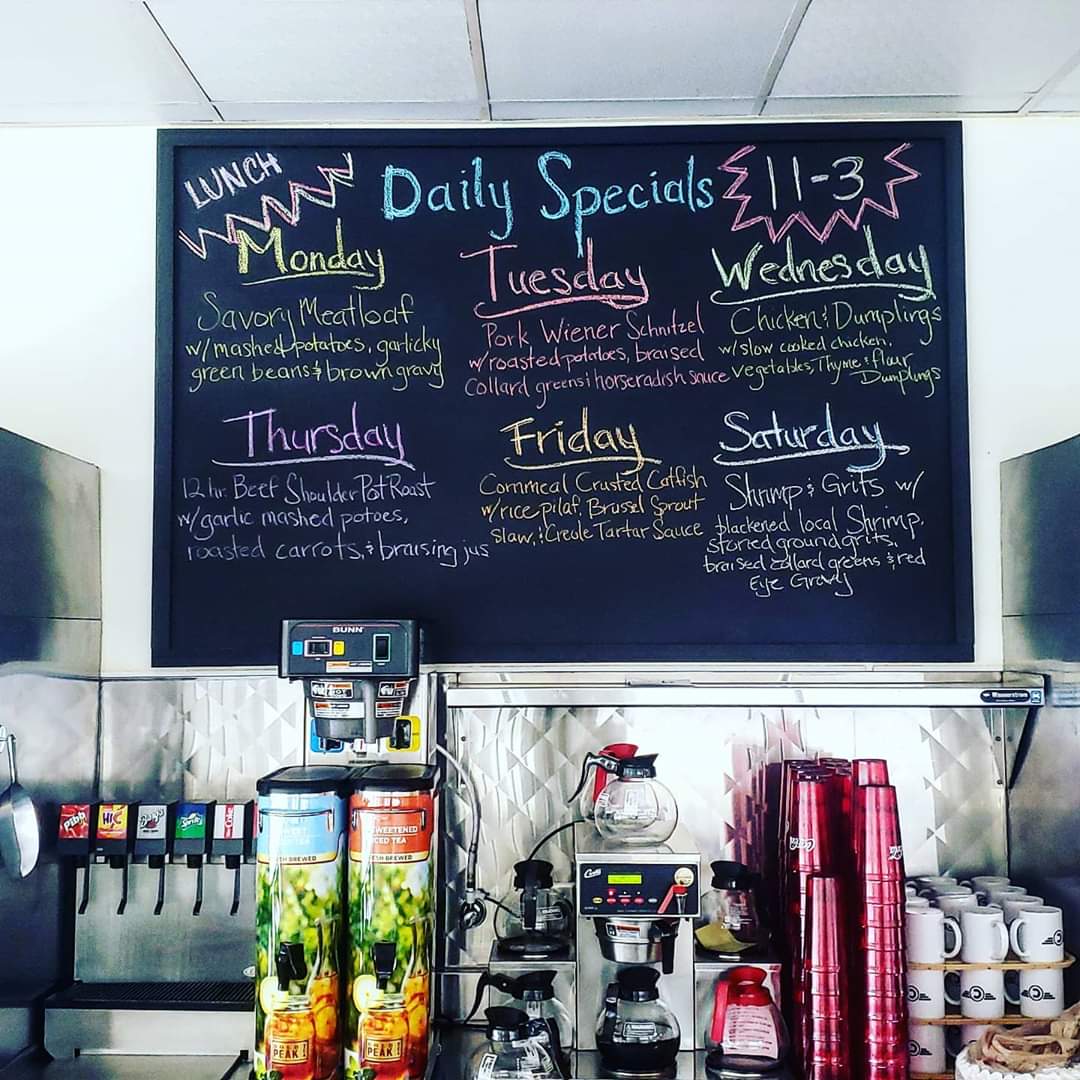 LUNCH
Daily Specials
11-3
Monday
Savory Meatloaf
w/mashed potatoes, garlicky
green beans & brown gravy
Tuesday
Pork Wiener Schnitzel
w/roasted potatoes, braised
Collard greens & horseradish sauce
Wednesday
Chicken & Dumplings
w/slow cooked chicken,
vegetables, Thyme & flour
Dumplings
Thursday
12 hr. Beef Shoulder Pot Roast
w/garlic mashed potoes,
roasted carrots, & braising jus
Friday
Cornmeal Crusted Catfish
w/rice pilaf, Brussel Sprout
slaw, & Creole Tartar Sauce
Saturday
Shrimp & Grits w/
blackened local Shrimp,
stoned ground grits,
braised collard greens & red
Eye Gravy
BUNN
Pibb
HI-C
Sprite
Coke
SWEET
SWEETENED
ICED TEA
FRESH BREWED
PEAK
PEAK
Curtis